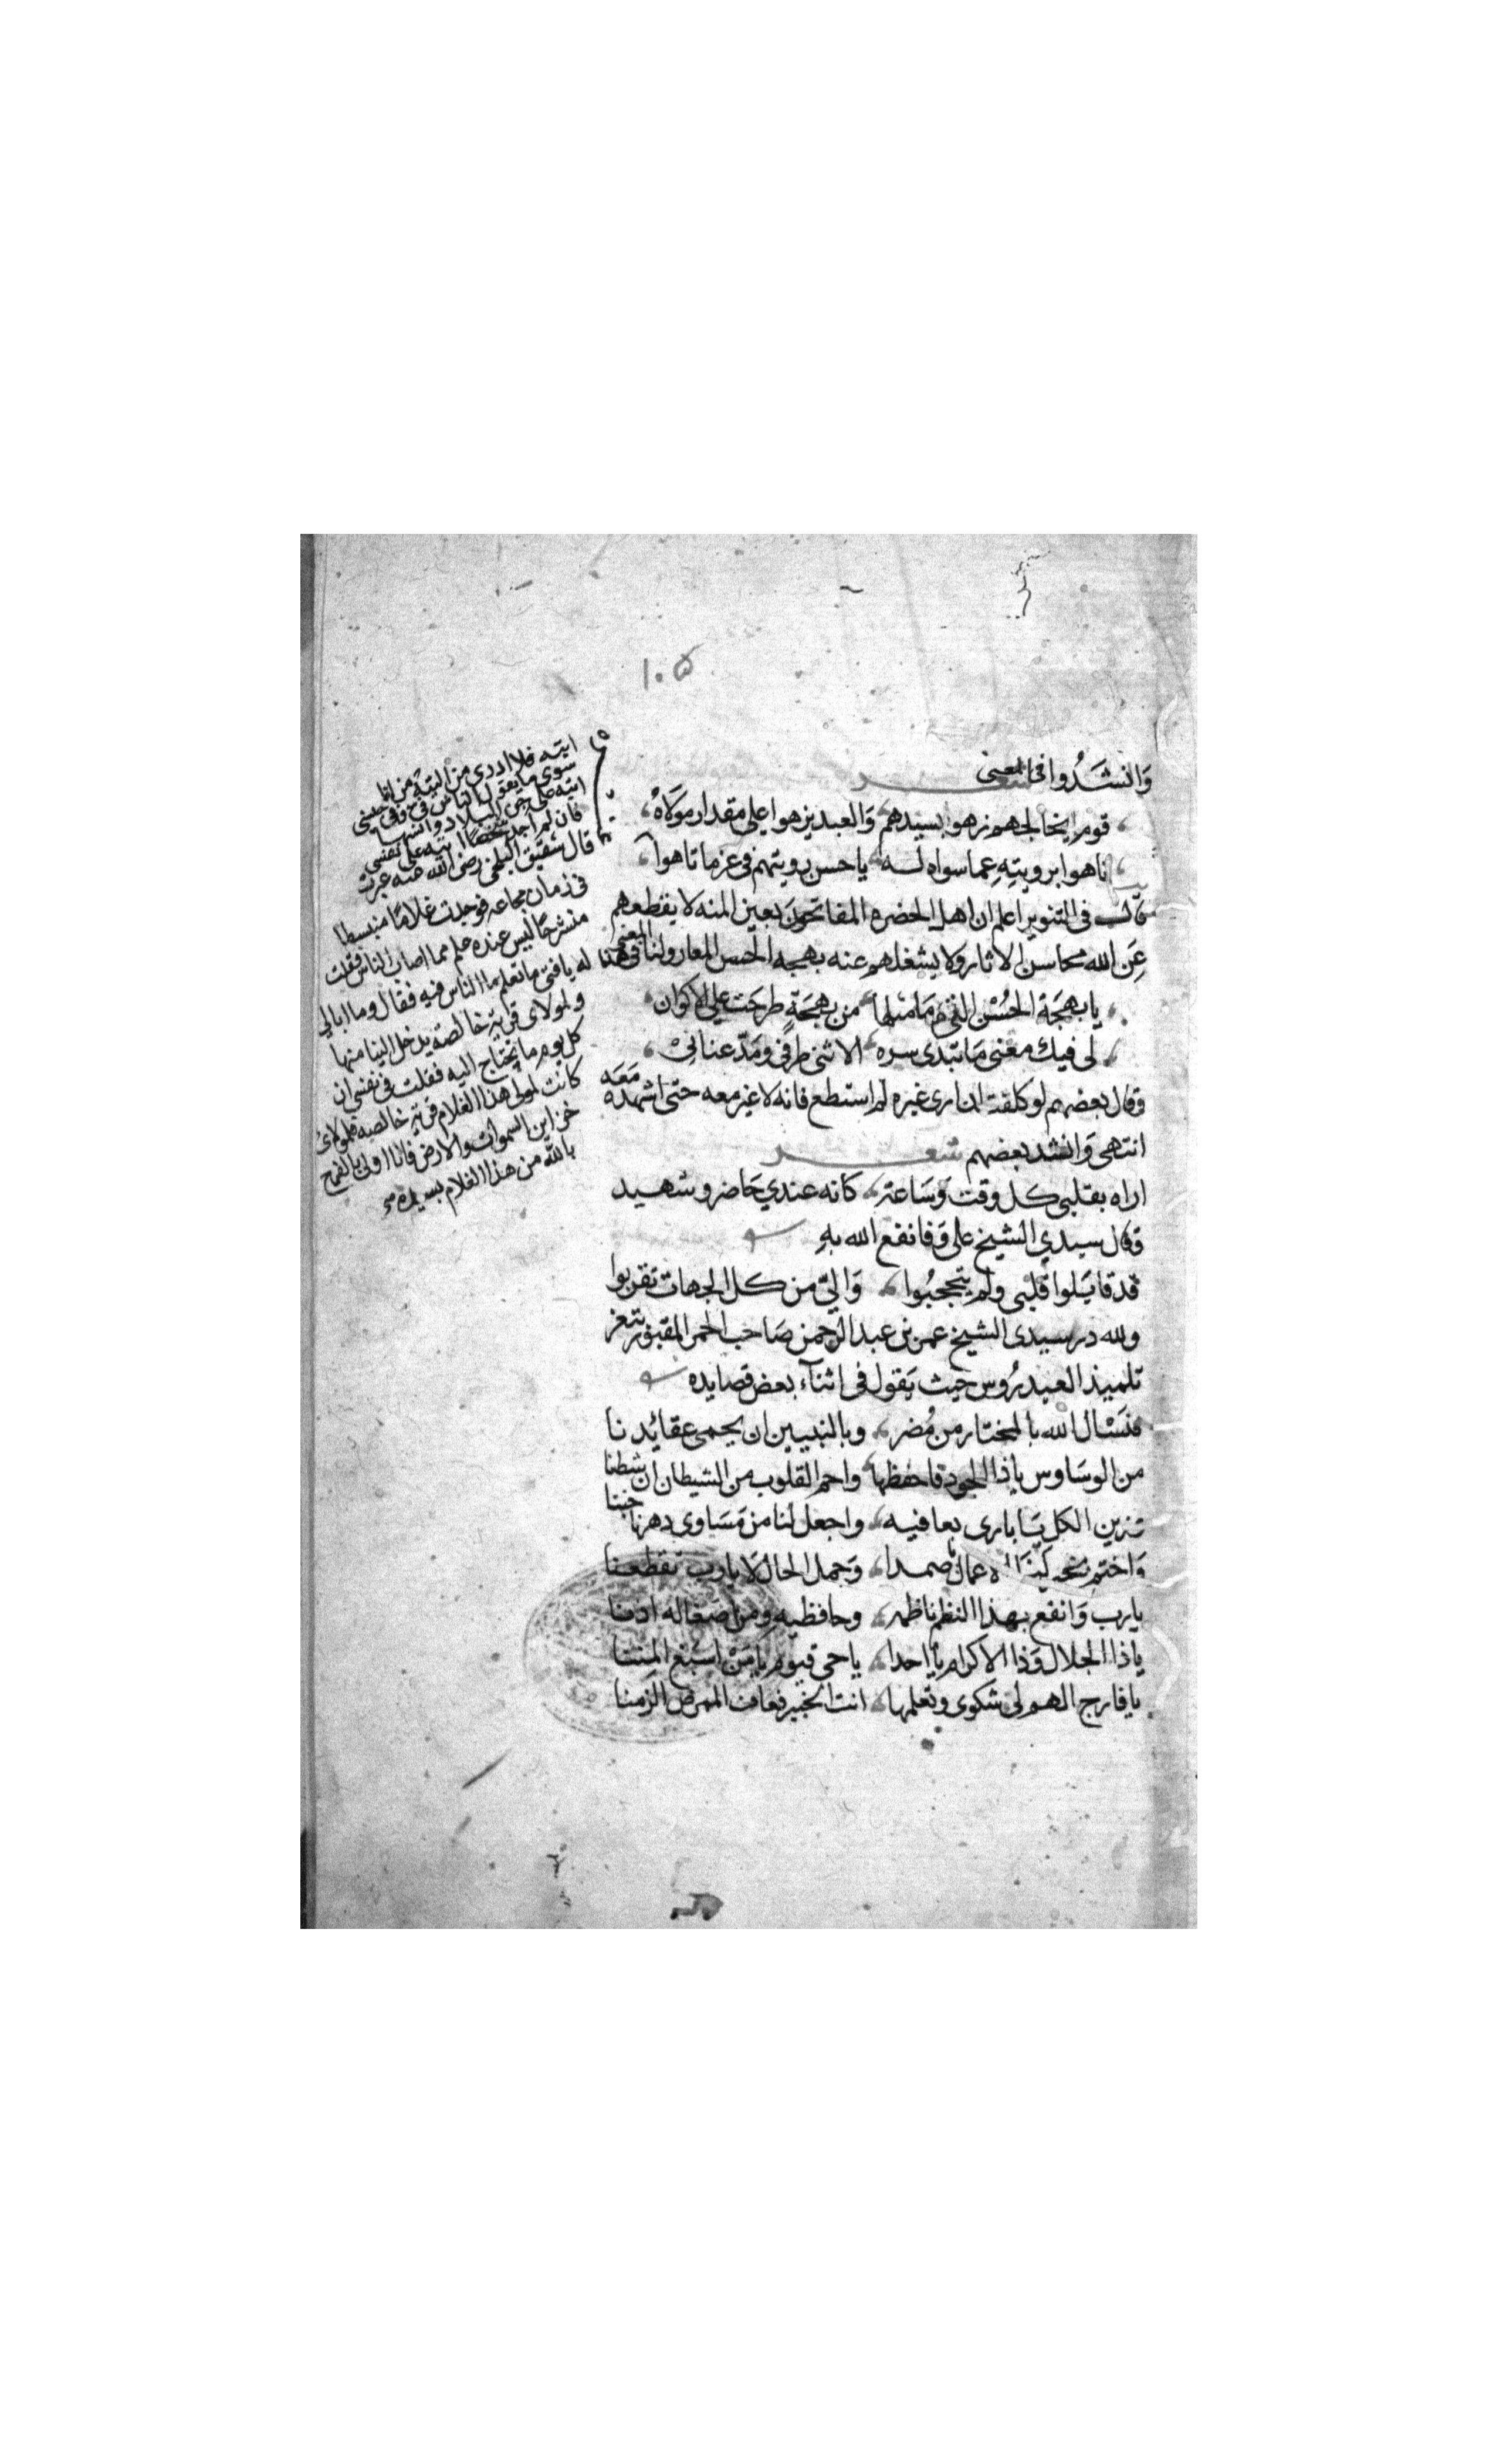 ١٠٥
وَانشَدُوا في المعنى
شعر
قوم اتخالجهم زهوا بسيدهم والعبد يزهوا على مقدار مولاهُ
تاهوا برويتهِ عما سواه له ياحسن رويتهم في عز ماتاهوا
قال في التنوير اعلم ان اهل الحضره المفاتحون بعين المنه لا يقطعهم
عَن الله محاسن الاثار ولا يشغلهم عنه بهجه الحسن المعار ولنا في هذا المعنى
يا بهجة الحُسْن التي مَا مثلها من بهجةٍ طرحَت علي الاكوان
لي فيك معنى مَا تبدى سره الا ثنى طرفي ومَدّ عناني
وقال بعضهم لو كلفت ان ارى غيره لم استطع فانه لا غير معه حتى اشهده مَعَه
انتهى وَانشد بعضهم شعر
اراه بقلبي كل وقت وَسَاعة كانه عندي حَاضر وشهيد
وقال سيدي الشيخ علي وَفا نفع الله بهِ
قد قابَلوا قلبي ولم يتحجبُوا وَاليّ من كل الجهات تقربوا
ولله در سيدي الشيخ عمر بن عبد الرحمن صَاحب الحمرا المقبور بتعز
تلميذ العيدرُوس حيث يَقول في اثنآء بعض قصايده
فنسْال الله بالمختار من مُضر وبالنبيين ان يحمى عقائدنا
من الوسَاوس ياذا الجود فاحفظها واحم القلوب من الشيطان ان شطنا
تزين الكل يَا باري بعافيه واجعل لنا من مَسَاوى دهرنا جننا
وَاختم بخير صمدا وَجمل الحال لا يارب تقطعنا
يارب وَانفع بهذا النظم ناظمه وحافظيه ومن اصغا له اذنا
ياذا الجلال وَذا الاكرام يا احدا ياحي قيوم يا مَنْ اسبغ المننا
يا فارج الهم لي شكوى وتعلمها انت الخبير فعاف الممرض الزمنا
ايته فلا ادري من التيه من انا
سوى ما يقول الناس في وفي جنسي
اتيه على جن البلاد وانسها
فان لم اجد شخصًا اتيه على نفسي
قال شقيق البلخي رضي الله عنه عبرت
في زمان مجاعه فوجدت غلامًا منبسطا
منشرحًا ليس عنده علم مما اصاب الناس فقلت
له يا فتى ما تعلم ما الناس فيه فقال وما ابالي
ولمولاى قرية خالصه يدخل الينا منها
كل يوم ما نحتاج اليه فقلت في نفسي ان
كانت لمولى هذا الغلام قرية خالصه فلمولاى
خزاين السموات والارض فانا اولى بالفرح
بالله من هذا الغلام بسيده